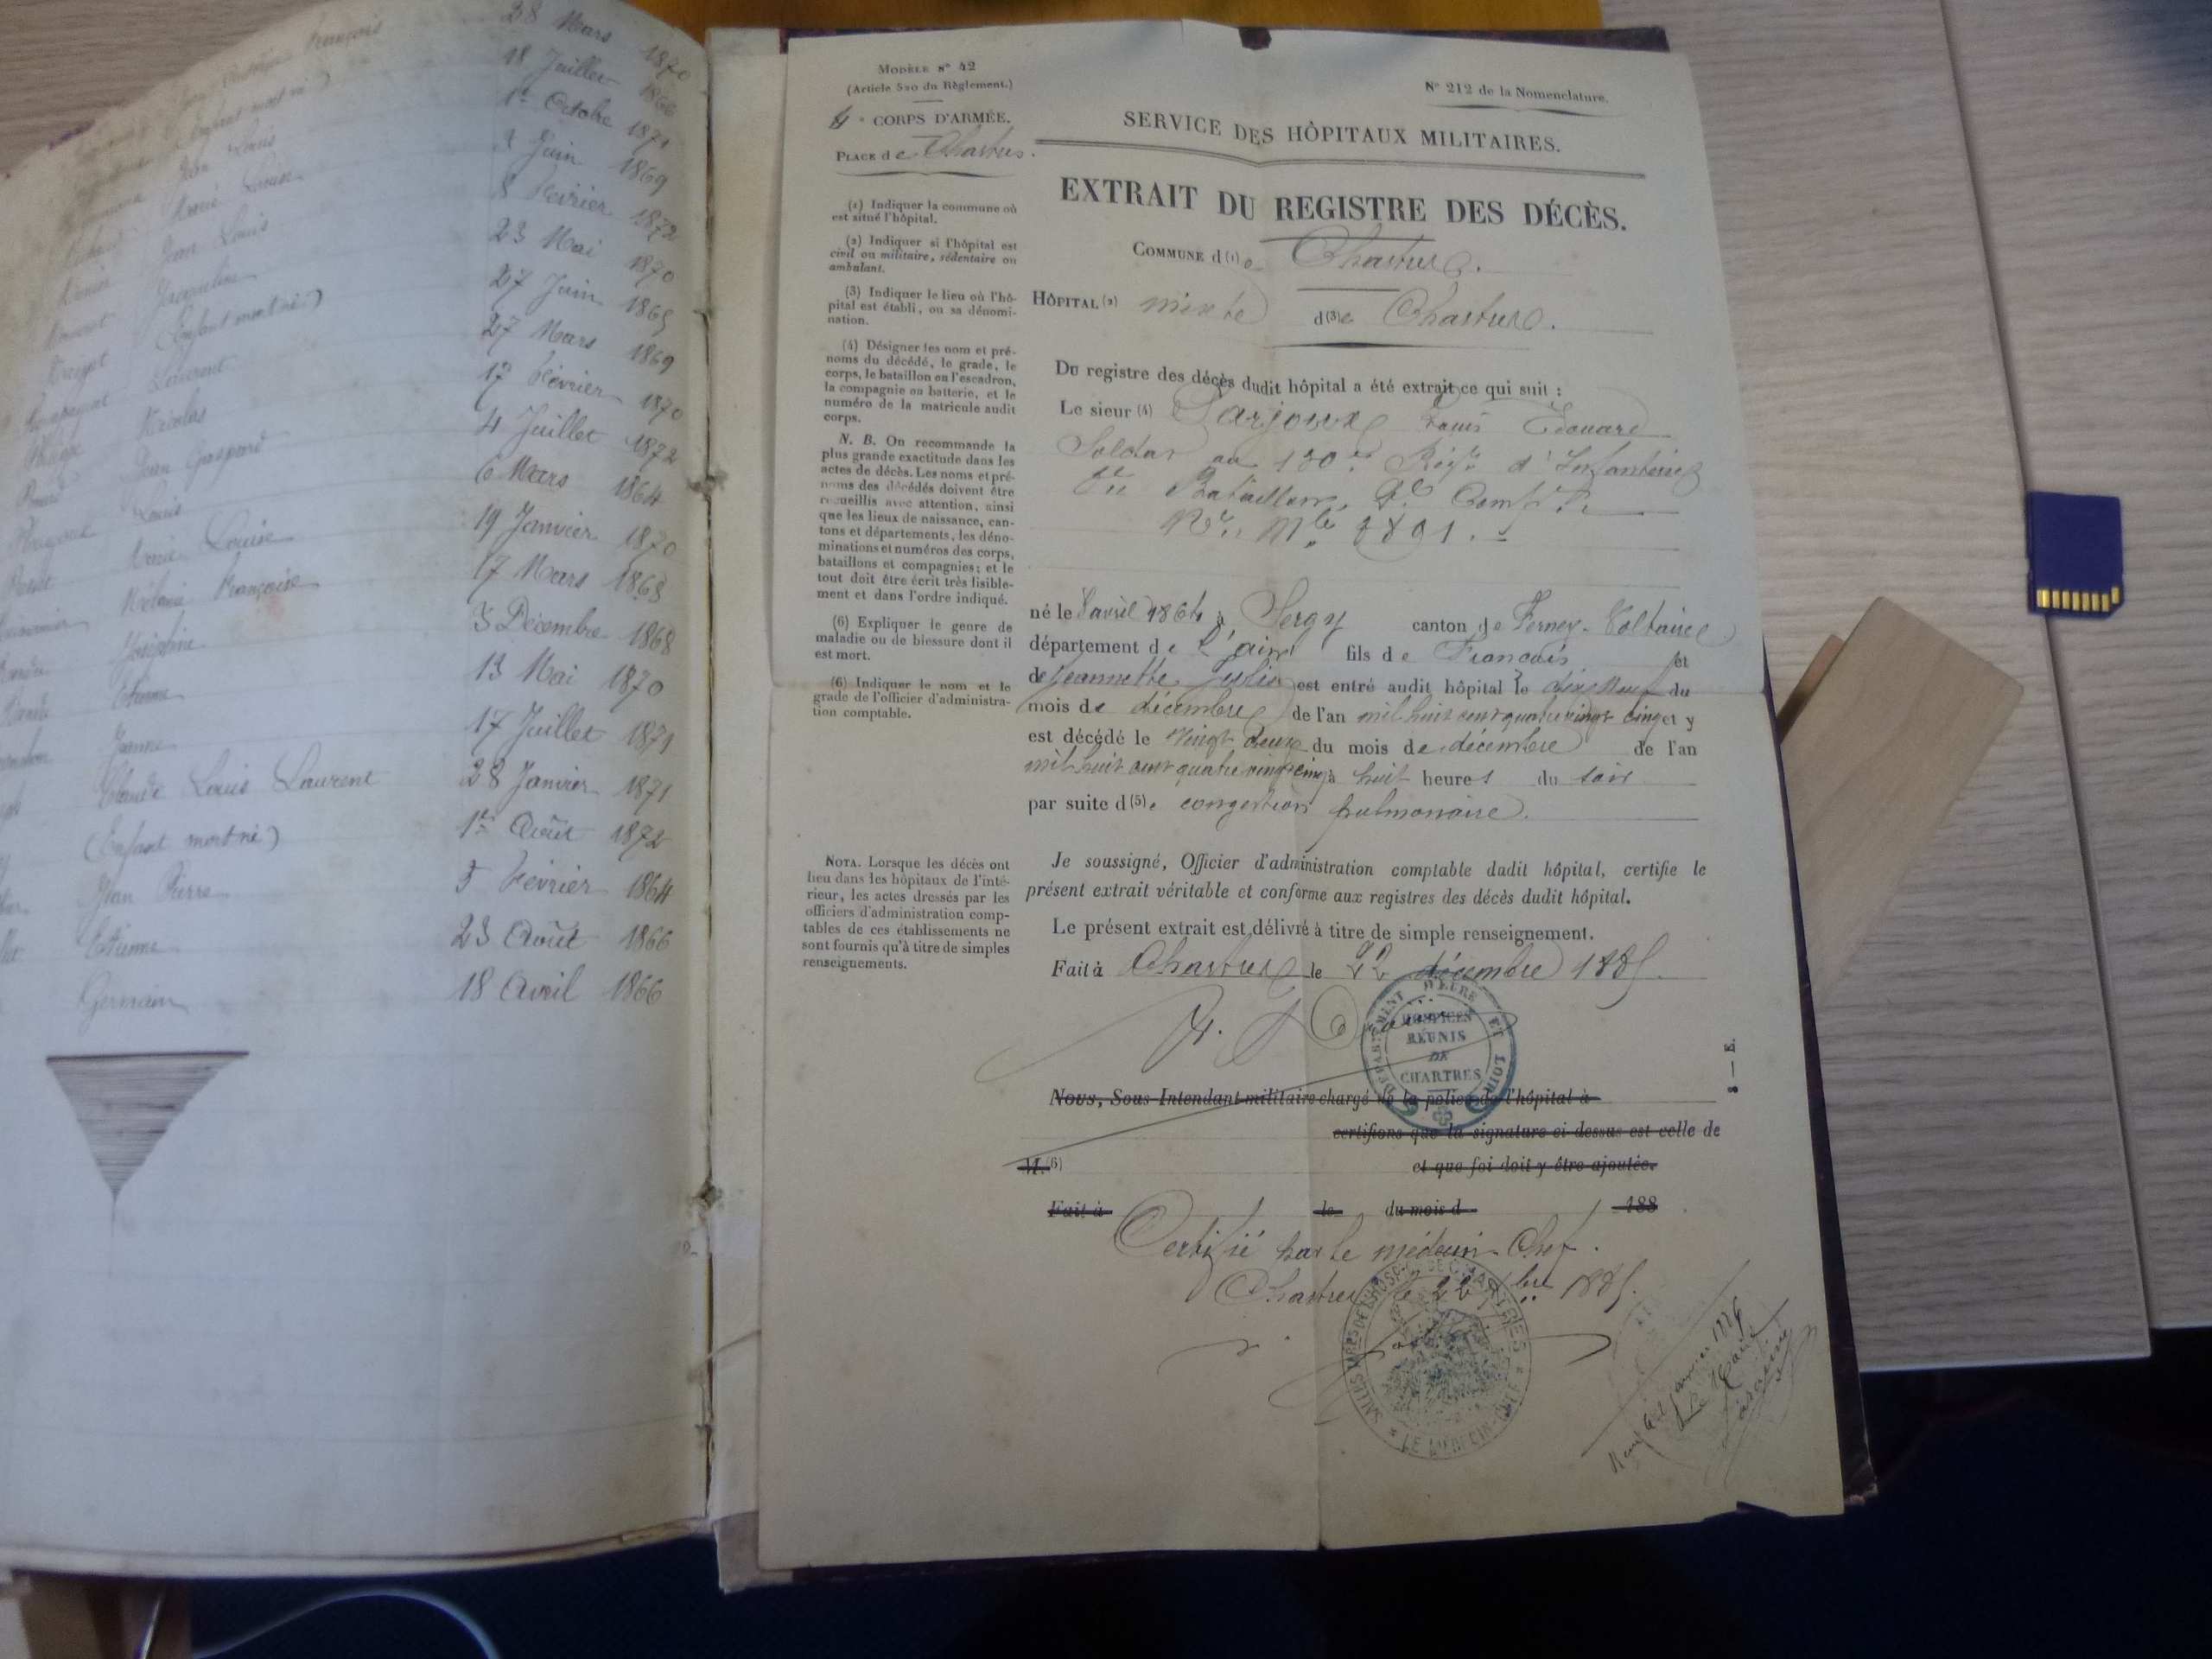 François 28 Mars 1870
18 Juillet 1866
1er Octobre 1871
Jean Louis 2 Juin 1869
Marie Louise 8 Février 1872
Jean Louis 23 Mai 1870
Jacqueline 27 Juin 1865
(Enfant mort né) 27 Mars 1869
Laurent 17 Février 1870
Nicolas 4 Juillet 1872
Jean Gaspard 6 Mars 1864
Louis 19 Janvier 1870
Marie Louise 17 Mars 1863
Mélanie Françoise 3 Décembre 1868
Joséphine 13 Mai 1870
Etienne 17 Juillet 1871
Jeanne 28 Janvier 1871
Claude Louis Laurent 1er Août 1872
(Enfant mort né) 5 Février 1864
Jean Pierre 23 Août 1866
Etienne 18 Avril 1866
Germain
Modèle N° 42
(Article 520 du Règlement.)
4e CORPS D'ARMÉE.
PLACE de Chartres.
N° 212 de la Nomenclature.
SERVICE DES HÔPITAUX MILITAIRES.
EXTRAIT DU REGISTRE DES DÉCÈS.
COMMUNE d(1)e Chartres.
HÔPITAL (2) mixte d(3)e Chartres.
(1) Indiquer la commune où
est situé l'hôpital.
(2) Indiquer si l'hôpital est
civil ou militaire, sédentaire ou
ambulant.
(3) Indiquer le lieu où l'hô-
pital est établi, ou sa dénomi-
nation.
(4) Désigner les nom et pré-
noms du décédé, le grade, le
corps, le bataillon ou l'escadron,
la compagnie ou batterie, et le
numéro de la matricule audit
corps.
N. B. On recommande la
plus grande exactitude dans les
actes de décès. Les noms et pré-
noms des décédés doivent être
recueillis avec attention, ainsi
que les lieux de naissance, can-
tons et départements, les déno-
minations et numéros des corps,
bataillons et compagnies; et le
tout doit être écrit très lisible-
ment et dans l'ordre indiqué.
(6) Expliquer le genre de
maladie ou de blessure dont il
est mort.
(6) Indiquer le nom et le
grade de l'officier d'administra-
tion comptable.
NOTA. Lorsque les décès ont
lieu dans les hôpitaux de l'inté-
rieur, les actes dressés par les
officiers d'administration comp-
tables de ces établissements ne
sont fournis qu'à titre de simples
renseignements.
Du registre des décès dudit hôpital a été extrait ce qui suit :
Le sieur (4) Louis Edouard
Soldat au 130e Régt d'Infanterie
Bataillon, 2e Compie
No Mle 2891.
né le 8 avril 1864 à Sergy canton de Ferney-Voltaire
département de l'ain fils de Francois et
de Jeannette Julie est entré audit hôpital le dix neuf du
mois de décembre de l'an mil huit cent quatre vingt cinq et y
est décédé le vingt deux du mois de décembre de l'an
mil huit cent quatre vingt cinq à huit heures du soir
par suite d(5)e congestion pulmonaire.
Je soussigné, Officier d'administration comptable dudit hôpital, certifie le
présent extrait véritable et conforme aux registres des décès dudit hôpital.
Le présent extrait est délivré à titre de simple renseignement.
Fait à Chartres le 22 décembre 1885.
DÉPARTEMENT D'EURE ET LOIR
HOSPICES
RÉUNIS
DE
CHARTRES
8 — E.
Nous, Sous-Intendant militaire chargé de la police de l'hôpital à
certifions que la signature ci-dessus est celle de
M. (6) et que foi doit y être ajoutée.
Fait à le du mois d 188
Certifié par le médecin-Chef.
Chartres le 22 Xbre 1885.
SALLES MRES DE L'HOSPICE DE CHARTRES
LE MÉDECIN CHEF
Le Maire